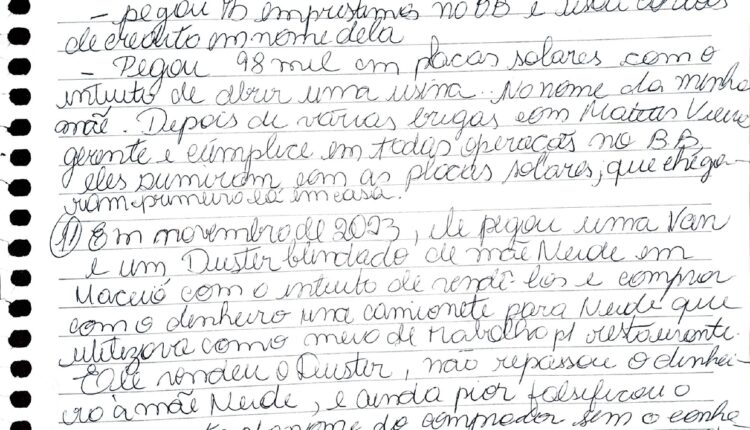 - pegou 13 empréstimos no BB e usou cartões
de crédito em nome dela
- Pegou 98 mil em placas solares como
intuito de abrir uma usina. No nome da minha
mãe. Depois de várias brigas com Mateus Vieira
gerente e cúmplice em todas operações no B.B,
eles sumiram com as placas solares, que chega-
ram primeiro lá em casa.
11) Em novembro de 2023, ele pegou uma Van
e um Duster blindado de mãe Neide em
Maceió com o intuito de vendê-los e comprar
com o dinheiro uma camionete para Neide que
utilizava como meio de trabalho p/ restaurante.
Ele vendeu o Duster, não repassou o dinhei-
ro à mãe Neide, e ainda pior falsificou o
nome do comprador sem o conhe